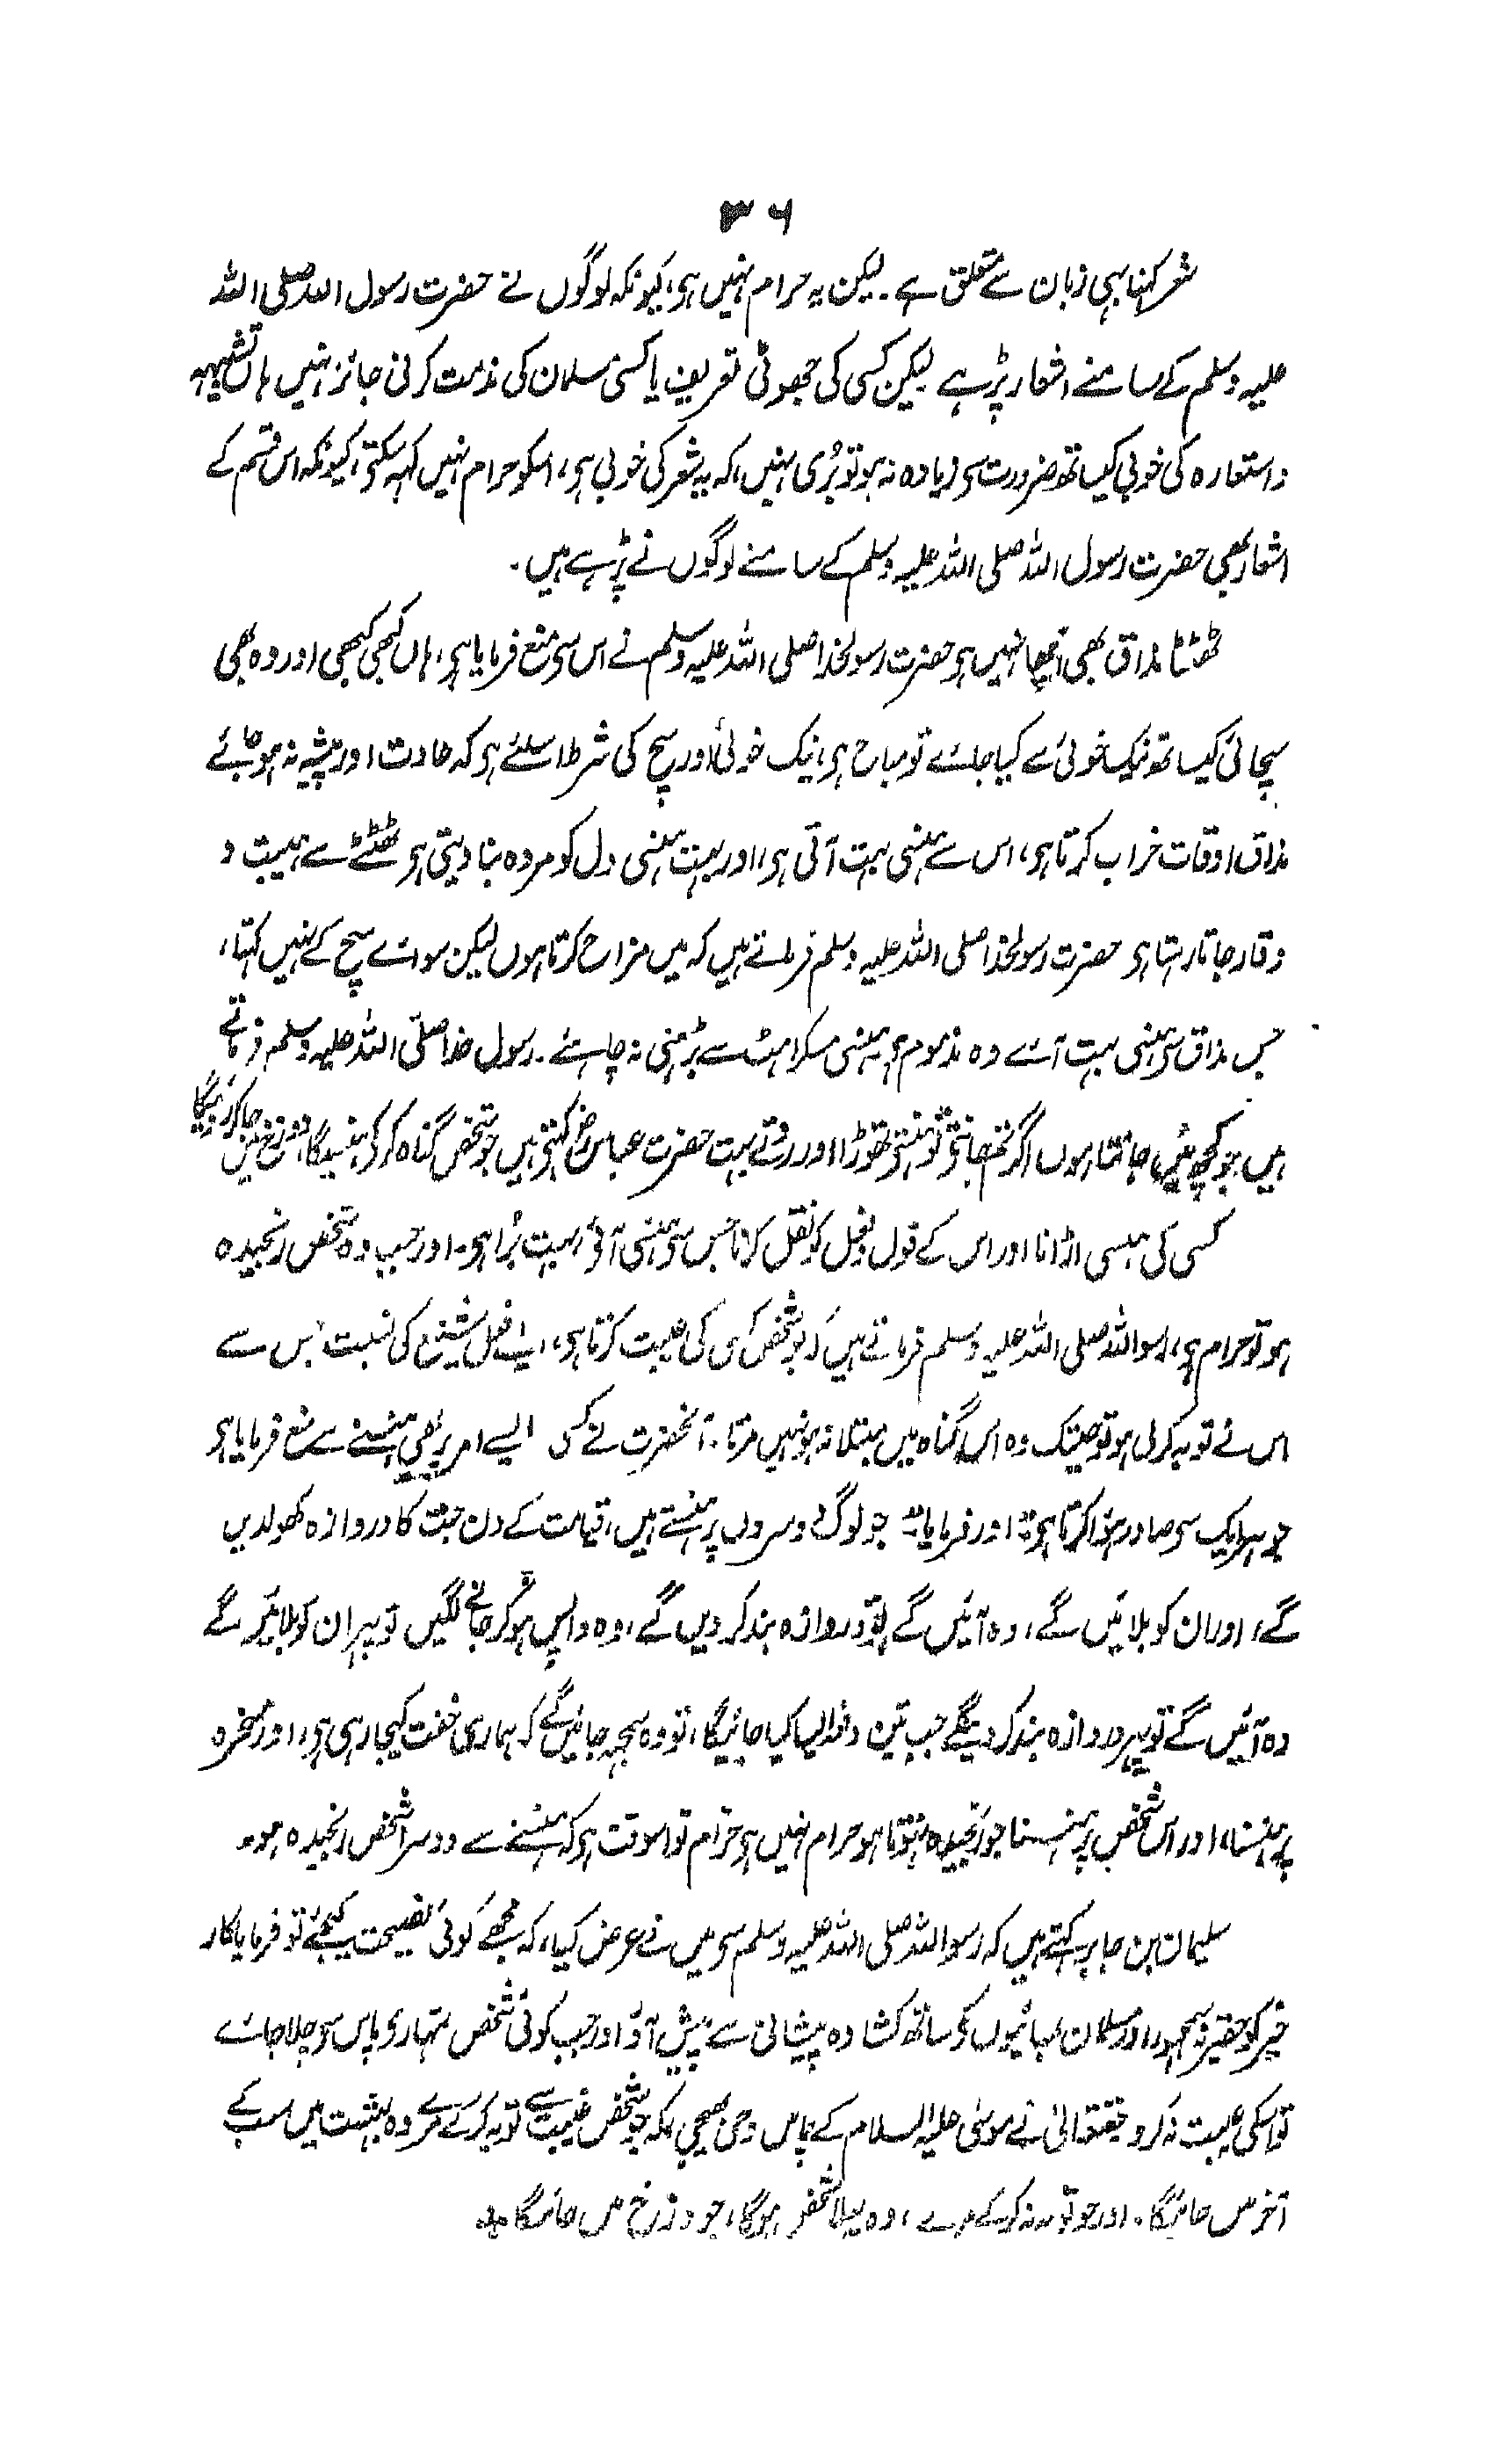 ۳۶
شعر کہنا بہی زبان سے متعلق ہے۔ لیکن یہ حرام نہیں ہی، کیونکہ لوگوں نے حضرت رسول اللہ صلی اللہ
علیہ وسلم کے سامنے اشعار پڑہے لیکن کسی کی جھوٹی تعریف یا کسی مسلمان کی مذمت کرنی جائز نہیں ہاں تشبیہہ
و استعارہ کی خوبی کیساتھ ضرورت سی زیادہ نہ ہو تو بُری نہیں، کہ یہ شعر کی خوبی ہی، اسکو حرام نہیں کہہ سکتی، کیونکہ اس قسم کے
اشعار بھی حضرت رسول اللہ صلی اللہ علیہ وسلم کے سامنے لوگوں نے پڑہے ہیں۔
ٹھٹھا مذاق بھی اچھا نہیں ہی حضرت رسولخدا صلی اللہ علیہ وسلم نے اس سی منع فرمایا ہی، ہاں کبھی کبھی اور وہ بھی
سچائی کیساتھ نیک خوئی سے کیا جائے تو مباح ہی، نیک خوئی اور سچ کی شرط اسلئے ہی کہ عادت اور پیشہ نہ ہو جائے
مذاق اوقات خراب کرتا ہی، اس سے ہنسی بہت آتی ہی، اور بہت ہنسی دل کو مردہ بنا دیتی ہی ٹھٹھے سے ہیبت و
وقار جاتا رہتا ہی حضرت رسولخدا صلی اللہ علیہ وسلم فرماتے ہیں کہ میں مزاح کرتا ہوں لیکن سوائے سچ کے نہیں کہتا،
جس مذاق سی ہنسی بہت آئے وہ مذموم ہی ہنسی مسکراہٹ سے بڑہنی نہ چاہئے۔ رسول خدا صلی اللہ علیہ وسلم فرماتے
ہیں جو کچھ میں جانتا ہوں اگر تم جانتی تو ہنستی تھوڑا اور روتے بہت حضرت عباس رض کہتی ہیں جو شخص گناہ کر کی ہنسیگا دوزخ میں جا کر
کسی کی ہنسی اڑانا اور اس کے قول و فعل کو نقل کرنا جس سی ہنسی آئی بہت بُرا ہی۔ اور جب وہ شخص رنجیدہ
ہو تو حرام ہی، رسول اللہ صلی اللہ علیہ وسلم فرماتے ہیں کہ جو شخص کسی کی غیبت کرتا ہی، ایسے فعل شنیع کی نسبت جس سے
اس نے توبہ کر لی ہو تو جبتک وہ اس گناہ میں مبتلا نہ ہو نہیں مرتا۔ آنحضرت نے کسی ایسے امر پر بھی ہنسنے سے منع فرمایا ہی
جو ہر ایک سی صادر ہوا کرتا ہی اور فرمایا جو لوگ دوسروں پر ہنستے ہیں، قیامت کے دن جنت کا دروازہ کھولدیں
گے، اور ان کو بلائیں گے، وہ آئیں گے تو دروازہ بند کر دیں گے، وہ واپس ہو کر جانے لگیں تو پہر ان کو بلائیں گے
وہ آئیں گے تو پہر دروازہ بند کر دینگے جب تین دفعہ ایسا کیا جائیگا، تو وہ سمجہہ جائیں گے کہ ہماری خفت کیجا رہی ہی، اور مسخرہ
پر ہنسنا، اور اس شخص پر ہنسنا جو رنجیدہ نہ ہوتا ہو حرام نہیں ہی حرام تو اسوقت ہی کہ ہنسنے سے دوسرا شخص رنجیدہ ہو۔
سلیمان بن جابر کہتے ہیں کہ رسول اللہ صلی اللہ علیہ وسلم سی میں نے عرض کیا، کہ مجھے کوئی نصیحت کیجئے تو فرمایا کار
خیر کو حقیر نہ سمجہو، اور مسلمان بہائیوں کو ساتھ کشادہ پیشانی سے پیش آؤ اور جب کوئی شخص تمہاری پاس سی چلا جائے
تو اسکی غیبت نہ کرو حقتعالیٰ نے موسیٰ علیہ السلام کے پاس وحی بھیجی کہ جو شخص غیبت سے توبہ کر کے مرے وہ بہشت میں سب کے
آخر میں جائیگا۔ اور جو توبہ نہ کر کے مرے، وہ پہلا شخص ہوگا، جو دوزخ میں جائیگا۔